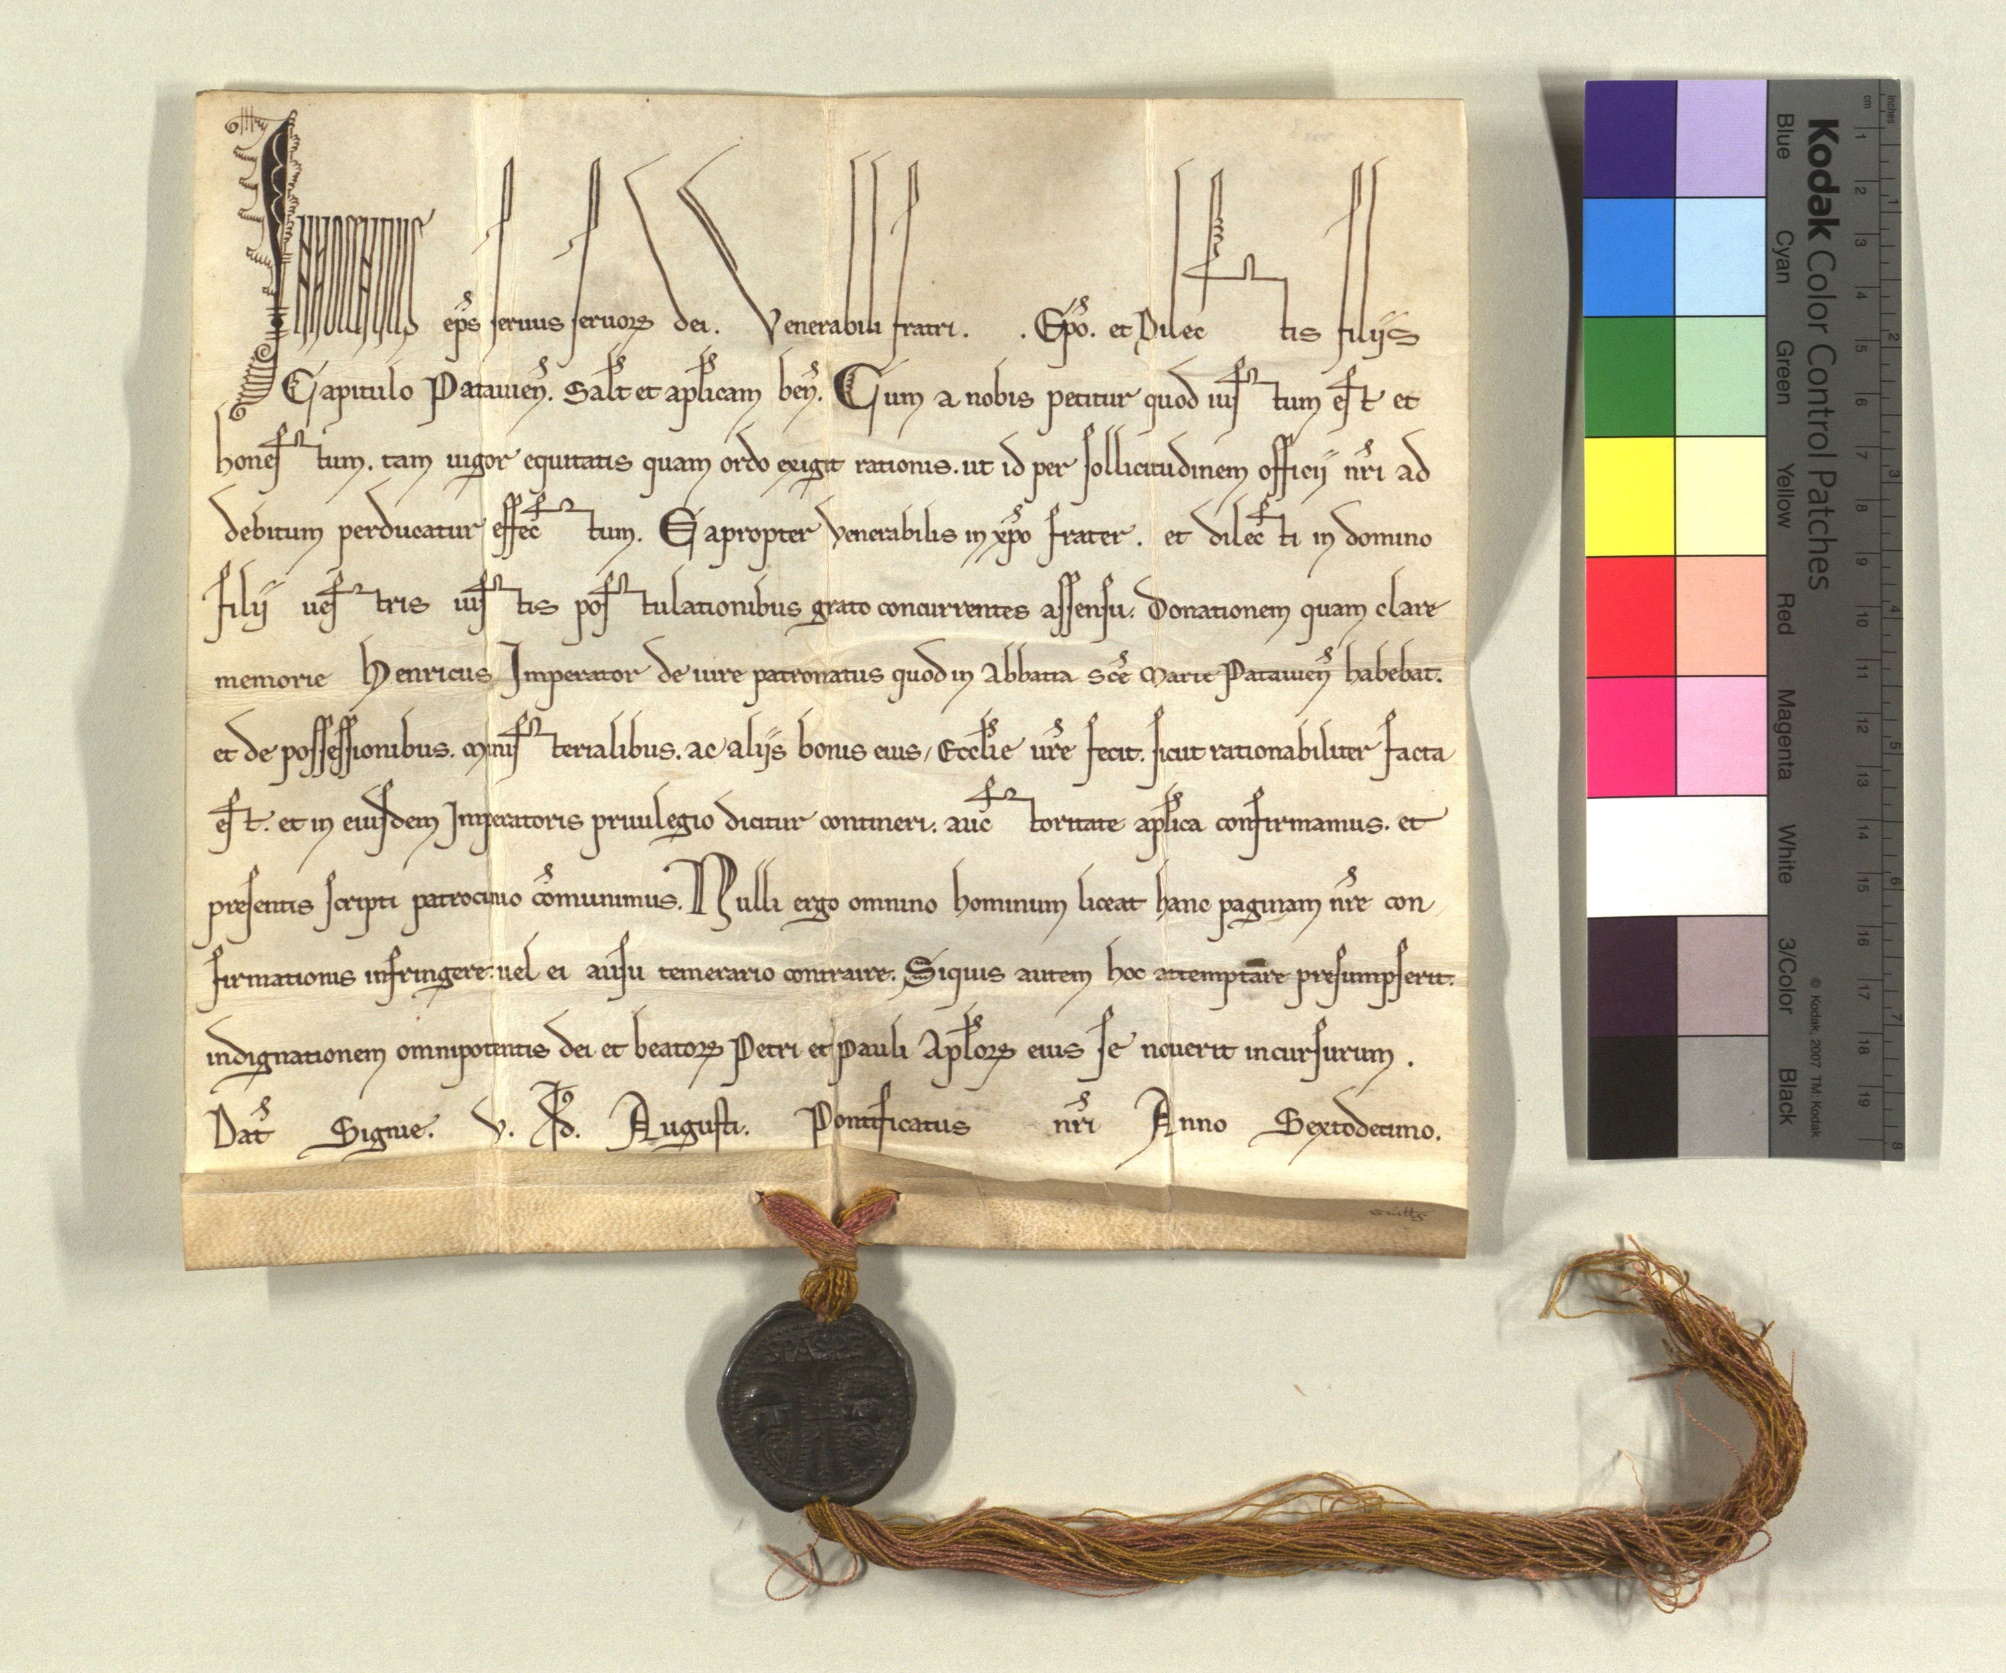 Innocentius ep̄s seruus seruoꝝ dei. Venerabili fratri. . Ep̄o. et Dilectis filijs
Capitulo Patauien̄. Salt̄ et ap̄licam ben̄. Cum a nobis petitur quod iustum est et
honestum. tam uigor equitatis quam ordo exigit rationis. ut id per sollicitudinem officij nr̄i ad
debitum perducatur effectum. Eapropter Venerabilis in xp̄o frater. et dilecti in domino
filij uestris iustis postulationibus grato concurrentes assensu. Donationem quam clare
memorie Henricus Imperator de iure patronatus quod in Abbatia Sc̄e Marie Patauien̄ habebat.
et de possessionibus. ministerialibus. ac alijs bonis eius, Eccl̄ie ur̄e fecit. sicut rationabiliter facta
est. et in eiusdem Imperatoris priuilegio dicitur contineri. auctoritate ap̄lica confirmamus. et
presentis scripti patrocinio cōmunimus. Nulli ergo omnino hominum liceat hanc paginam nr̄e con
firmationis infringere. uel ei ausu temerario contraire. Siquis autem hoc attemptare presumpserit.
indignationem omnipotentis dei et beatoꝝ Petri et Pauli Ap̄loꝝ eius se nouerit incursurum.
Dat̄ Signie. V. Kl̄. Augusti. Pontificatus nr̄i Anno Sextodecimo.
SPA SPE
Kodak Color Control Patches
Blue Cyan Green Yellow Red Magenta White 3/Color Black
© Kodak, 2007 TM: Kodak
inches 1 2 3 4 5 6 7 8
cm 1 2 3 4 5 6 7 8 9 10 11 12 13 14 15 16 17 18 19